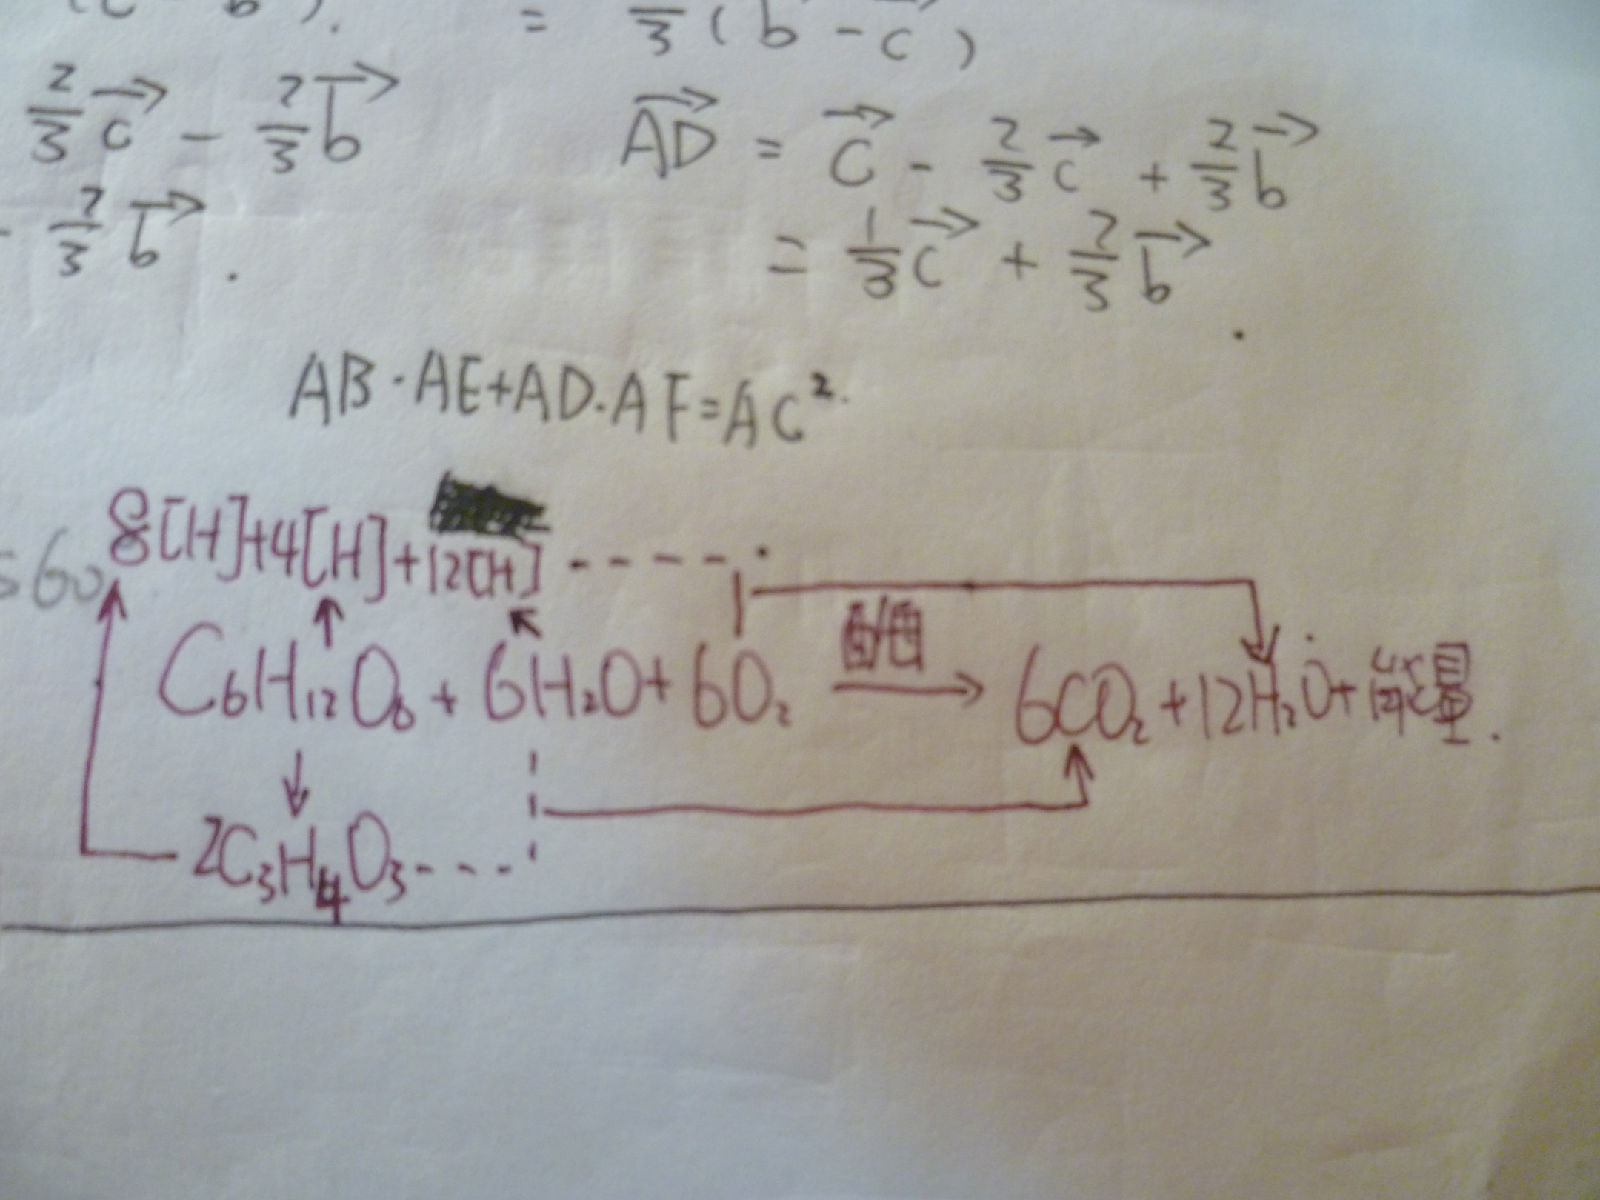 = 2/3 (b⃗ - c⃗)
2/3 c⃗ - 2/3 b⃗
AD⃗ = c⃗ - 2/3 c⃗ + 2/3 b⃗
2/3 b⃗ .
= 1/3 c⃗ + 2/3 b⃗ .
AB·AE+AD·AF=AC².
560
8[H]+4[H]+12[H] -----·
C₆H₁₂O₆ + 6H₂O + 6O₂ 酶 → 6CO₂ + 12H₂O + 能量.
2C₃H₄O₃ ---